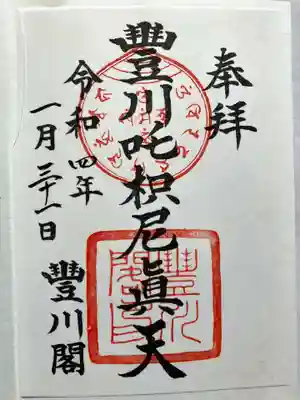 奉拝
豐川吒枳尼眞天
豐川閣印
令和四年
一月三十一日
豐川閣